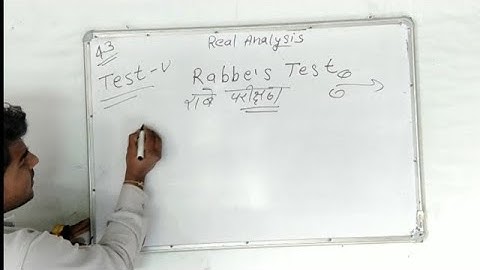 43
Real Analysis
Test-V
Rabbe's Test
राबे परीक्षण